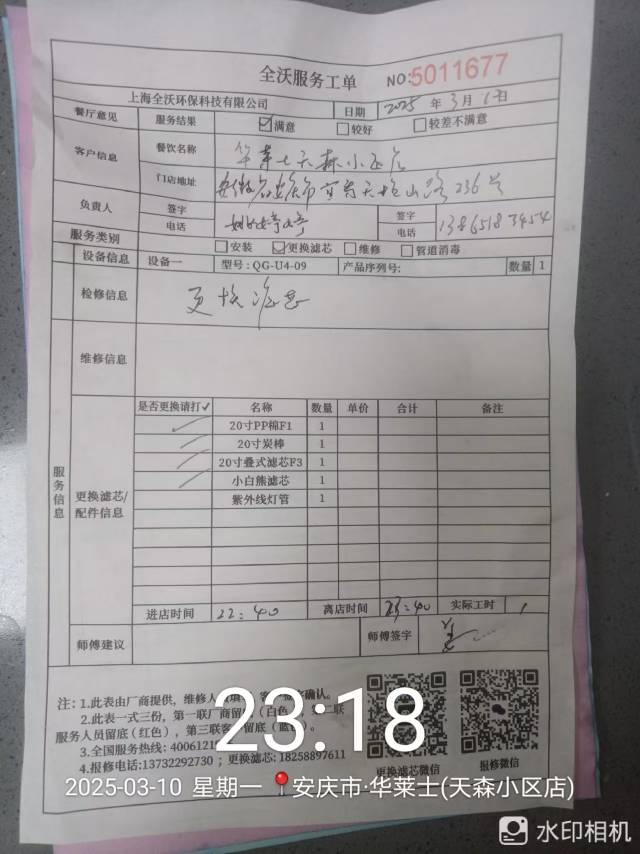 全沃服务工单 NO:5011677
上海全沃环保科技有限公司 日期 2025 年 3 月 10日
餐厅意见 服务结果 ☑满意 □较好 □较差不满意
客户信息 餐饮名称 华莱士天森小区店
门店地址 安徽省安庆市宜秀天柱山路236号
负责人 签字 签字
电话 电话 13865183454
服务类别 □安装 ☑更换滤芯 □维修 □管道消毒
设备信息 设备一 型号:QG-U4-09 产品序列号: 数量 1
检修信息 更换滤芯
维修信息
服务信息
更换滤芯/配件信息
是否更换请打✓ 名称 数量 单价 合计 备注
✓ 20寸PP棉F1 1
✓ 20寸炭棒 1
✓ 20寸叠式滤芯F3 1
✓ 小白熊滤芯 1
紫外线灯管 1
进店时间 22:40 离店时间 23:40 实际工时 1
师傅建议 师傅签字
注: 1.此表由厂商提供，维修人 填 客 确认。
2.此表一式三份，第一联厂商留 (白色 二联
服务人员留底(红色)，第三联客 留底(蓝
3.全国服务热线: 4006121
4.报修电话:13732292730；更换滤芯: 18258897611
更换滤芯微信 报修微信
23:18
2025-03-10 星期一 安庆市·华莱士(天森小区店)
水印相机